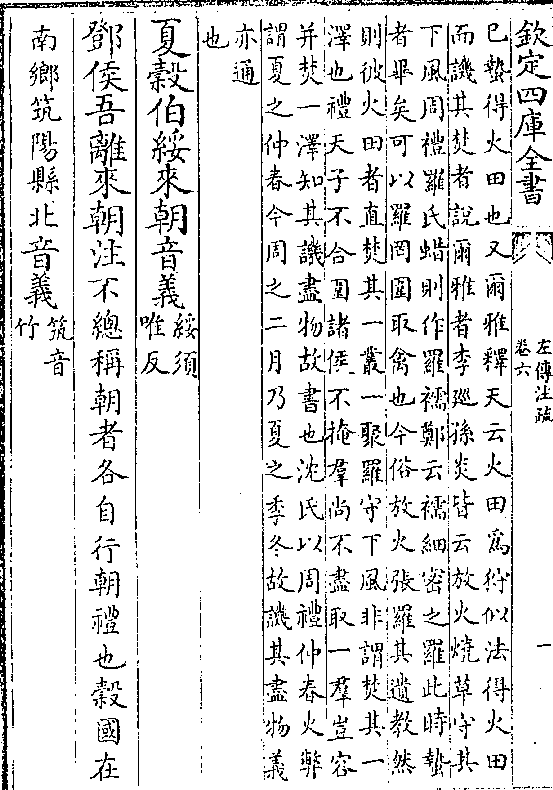 欽定四庫全書
左傳注疏
卷六
一
已蟄得火田也又爾雅釋天云火田爲狩似法得火田
而譏其焚者說爾雅者李廵孫炎皆云放火燒草守其
下風周禮羅氏蜡則作羅襦鄭云襦細密之羅此時蟄
者畢矣可以羅罔圍取禽也今俗放火張羅其遺教然
則彼火田者直焚其一叢一聚羅守下風非謂焚其一
澤也禮天子不合圍諸侯不掩羣尚不盡取一羣豈容
并焚一澤知其譏盡物故書也沈氏以周禮仲春火弊
謂夏之仲春今周之二月乃夏之季冬故譏其盡物義
亦通
也
夏穀伯綏來朝音義綏須
唯反
鄧侯吾離來朝注不總稱朝者各自行朝禮也穀國在
南鄉筑陽縣北音義筑音
竹